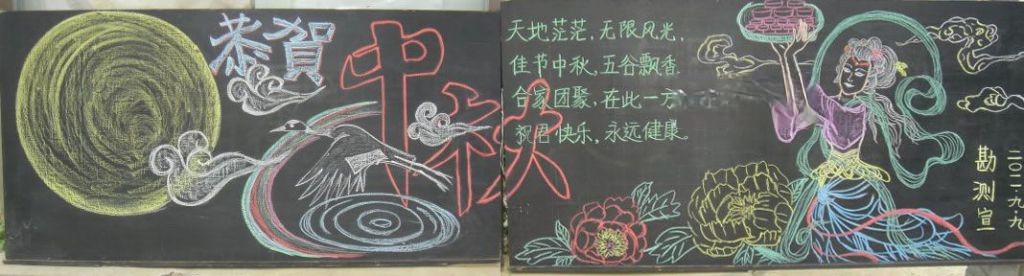 恭贺
中秋
天地茫茫，无限风光，
佳节中秋，五谷飘香。
合家团聚，在此一方
祝君快乐，永远健康。
勘测宣
二〇一一九九